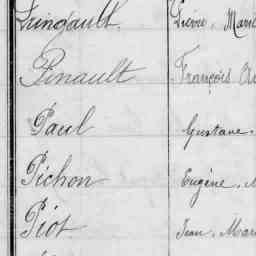 Pierre, Mari
Pinault François Au
Paul Gustave
Pichon Eugène, M
Piot Jean, Mar